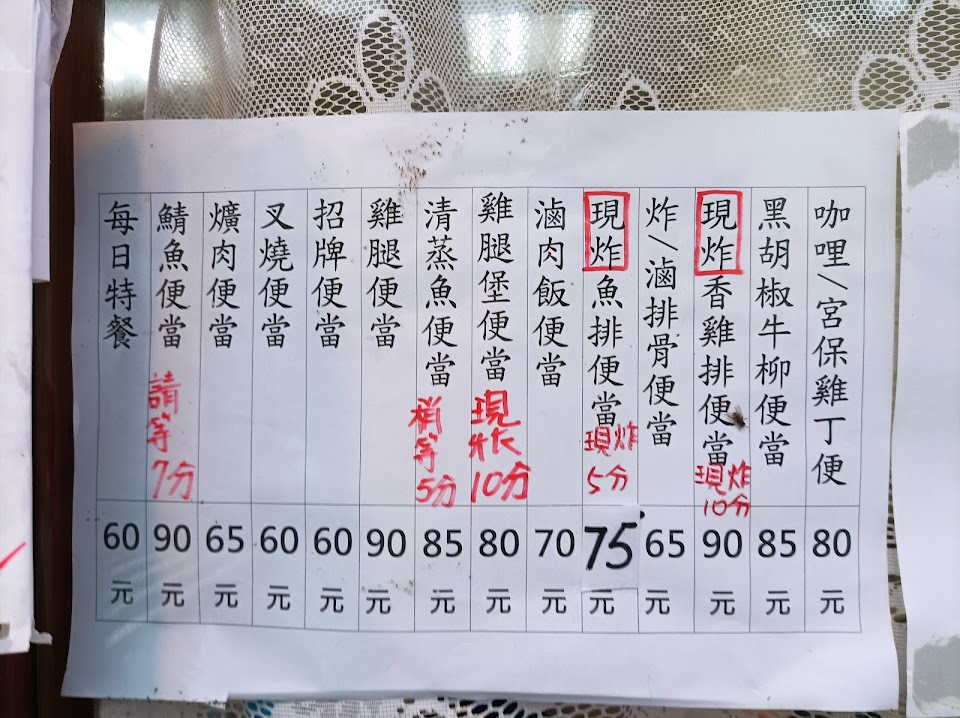 咖哩/宮保雞丁便
80
元
黑胡椒牛柳便當
85
元
現炸香雞排便當
現炸
10分
90
元
炸/滷排骨便當
65
元
現炸魚排便當
現炸
5分
75
元
滷肉飯便當
70
元
雞腿堡便當
現
10分
80
元
清蒸魚便當
稍等
5分
85
元
雞腿便當
90
元
招牌便當
60
元
叉燒便當
60
元
爌肉便當
65
元
鯖魚便當
請等
7分
90
元
每日特餐
60
元